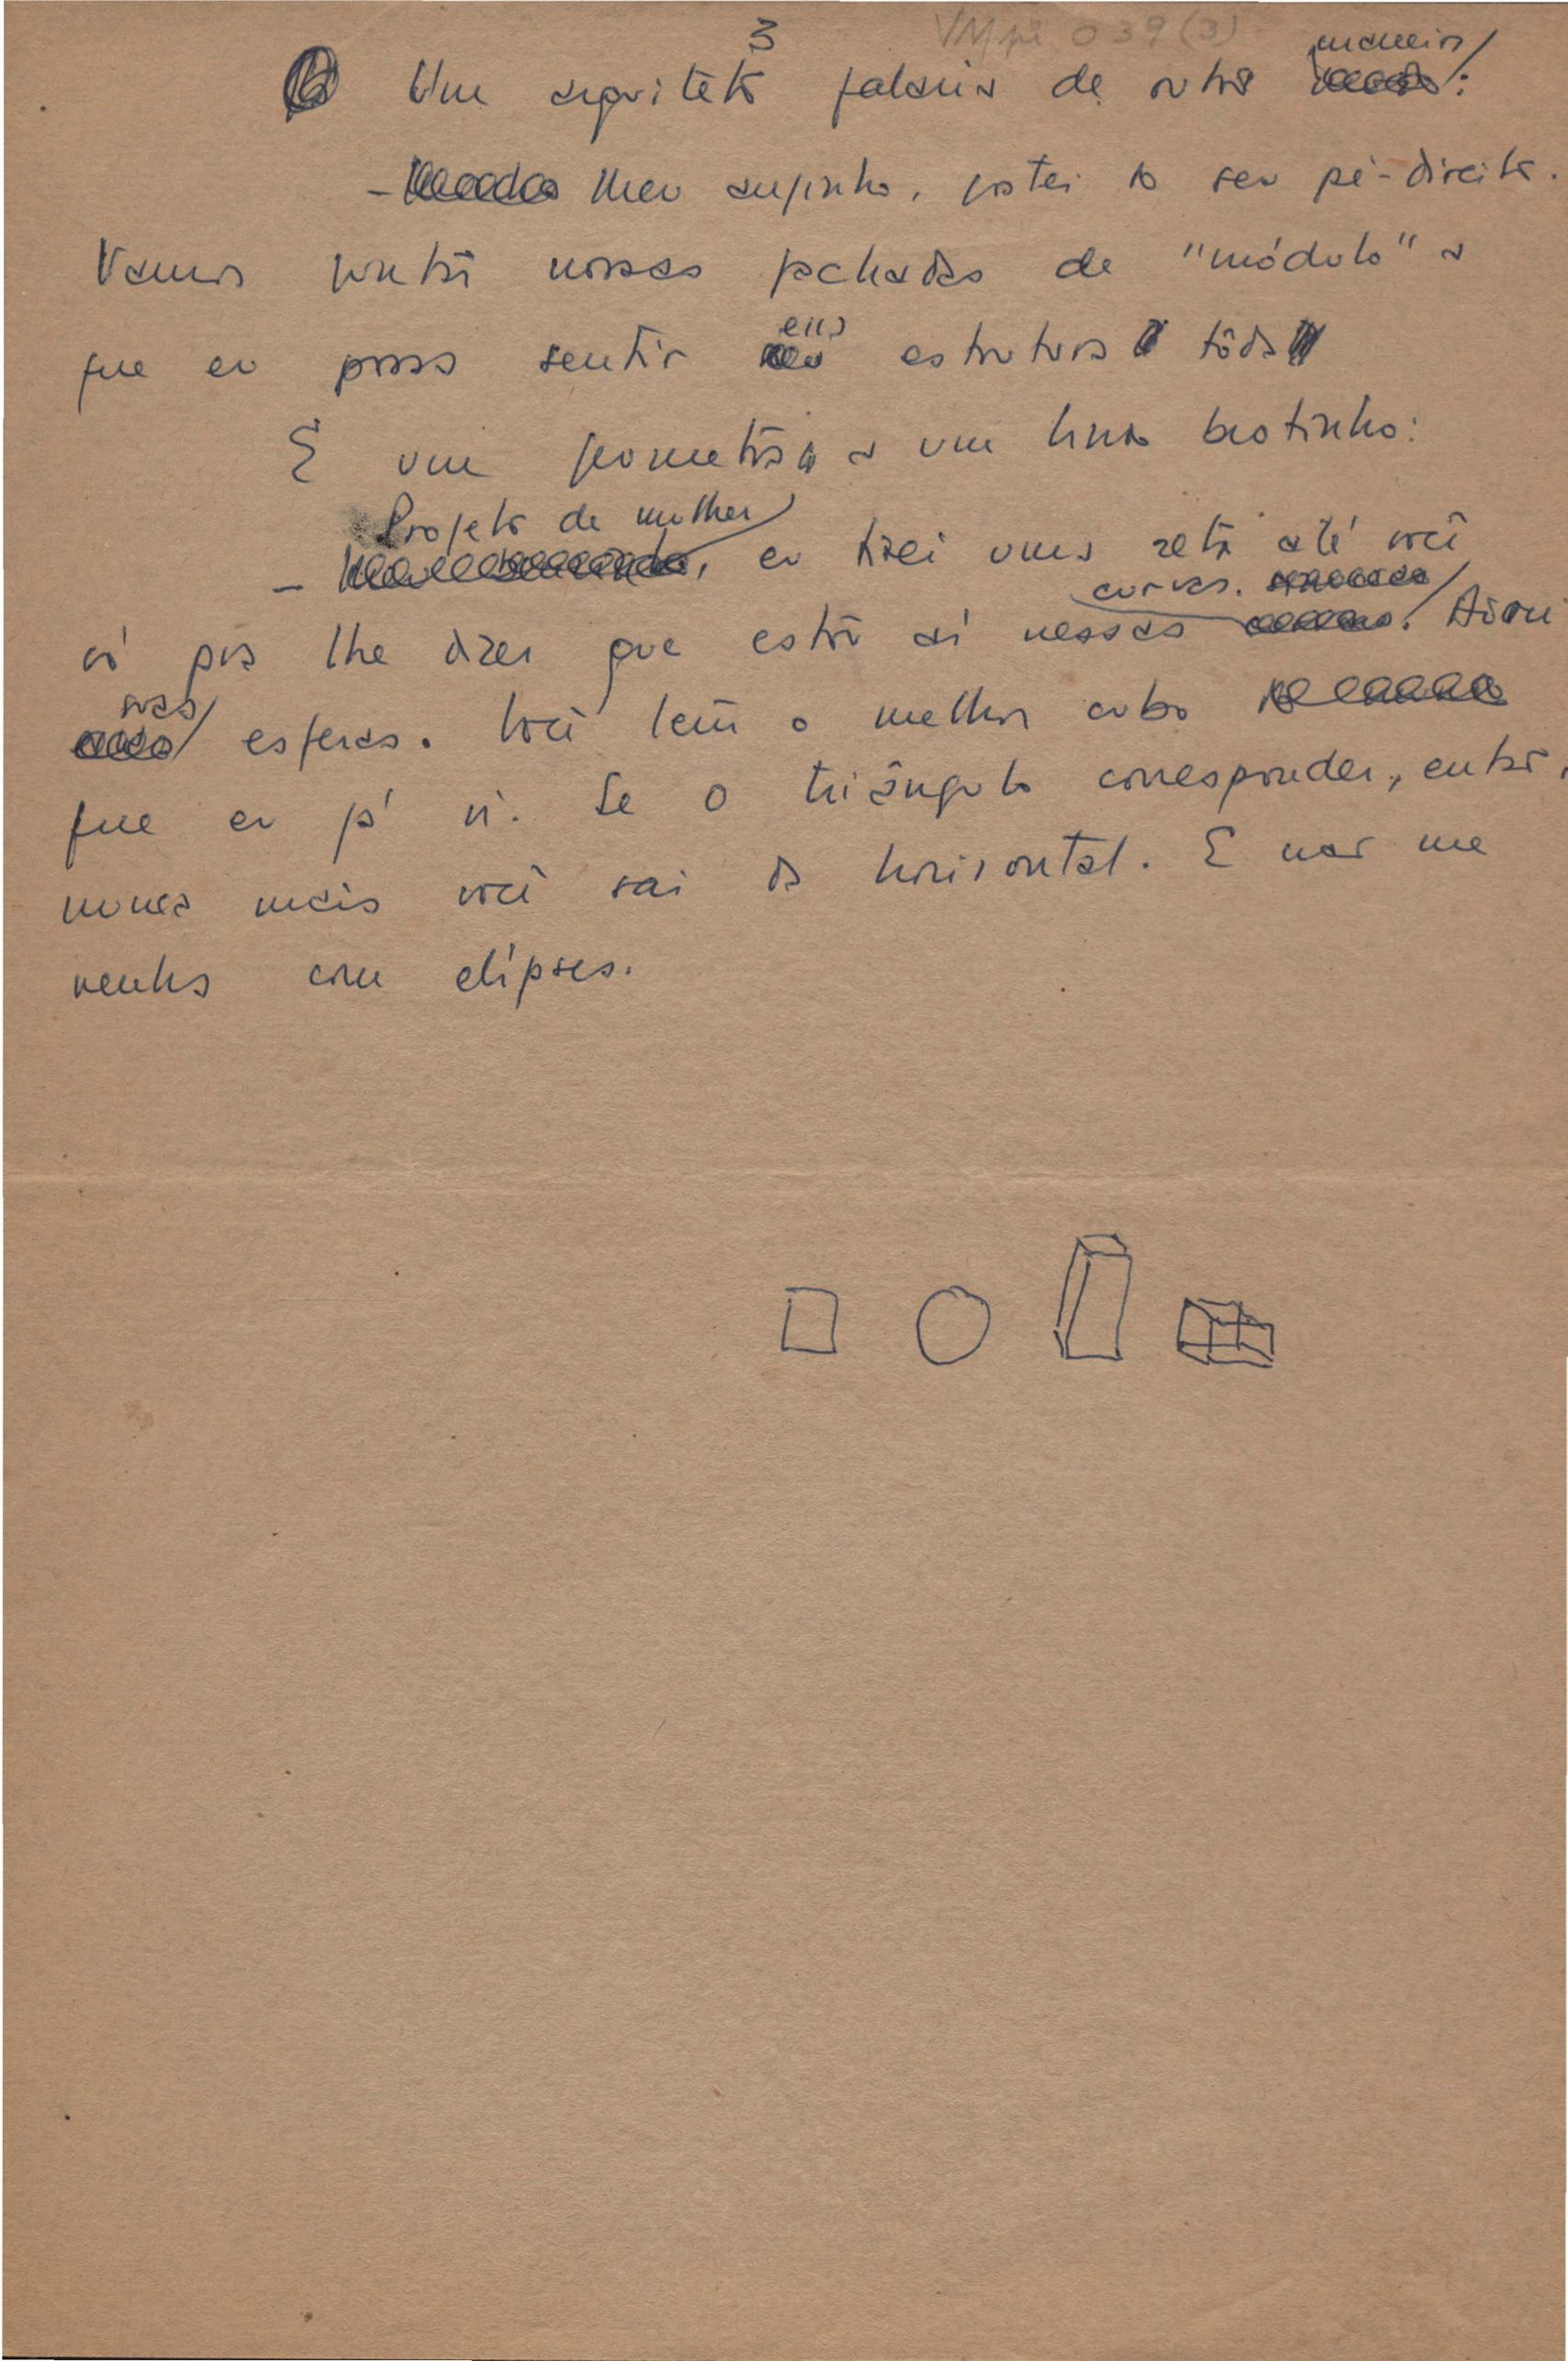 3
VMpi 039 (3)
Um arquiteto falaria de outra maneira:
- Meu anjinho, gostei do seu pé-direito.
Vamos juntar nossas fachadas de "módulo" a
que eu possa sentir essa estrutura tôda
E um geometra a um lindo brotinho:
- Projeto de mulher, eu tirei uma reta até você
só pra lhe dizer que estou aí nessas curvas. Adorei
suas esferas. Você tem o melhor cubo
que eu já vi. Se o triângulo corresponder, então,
nunca mais você sai da horisontal. E não me
venha com elipses.